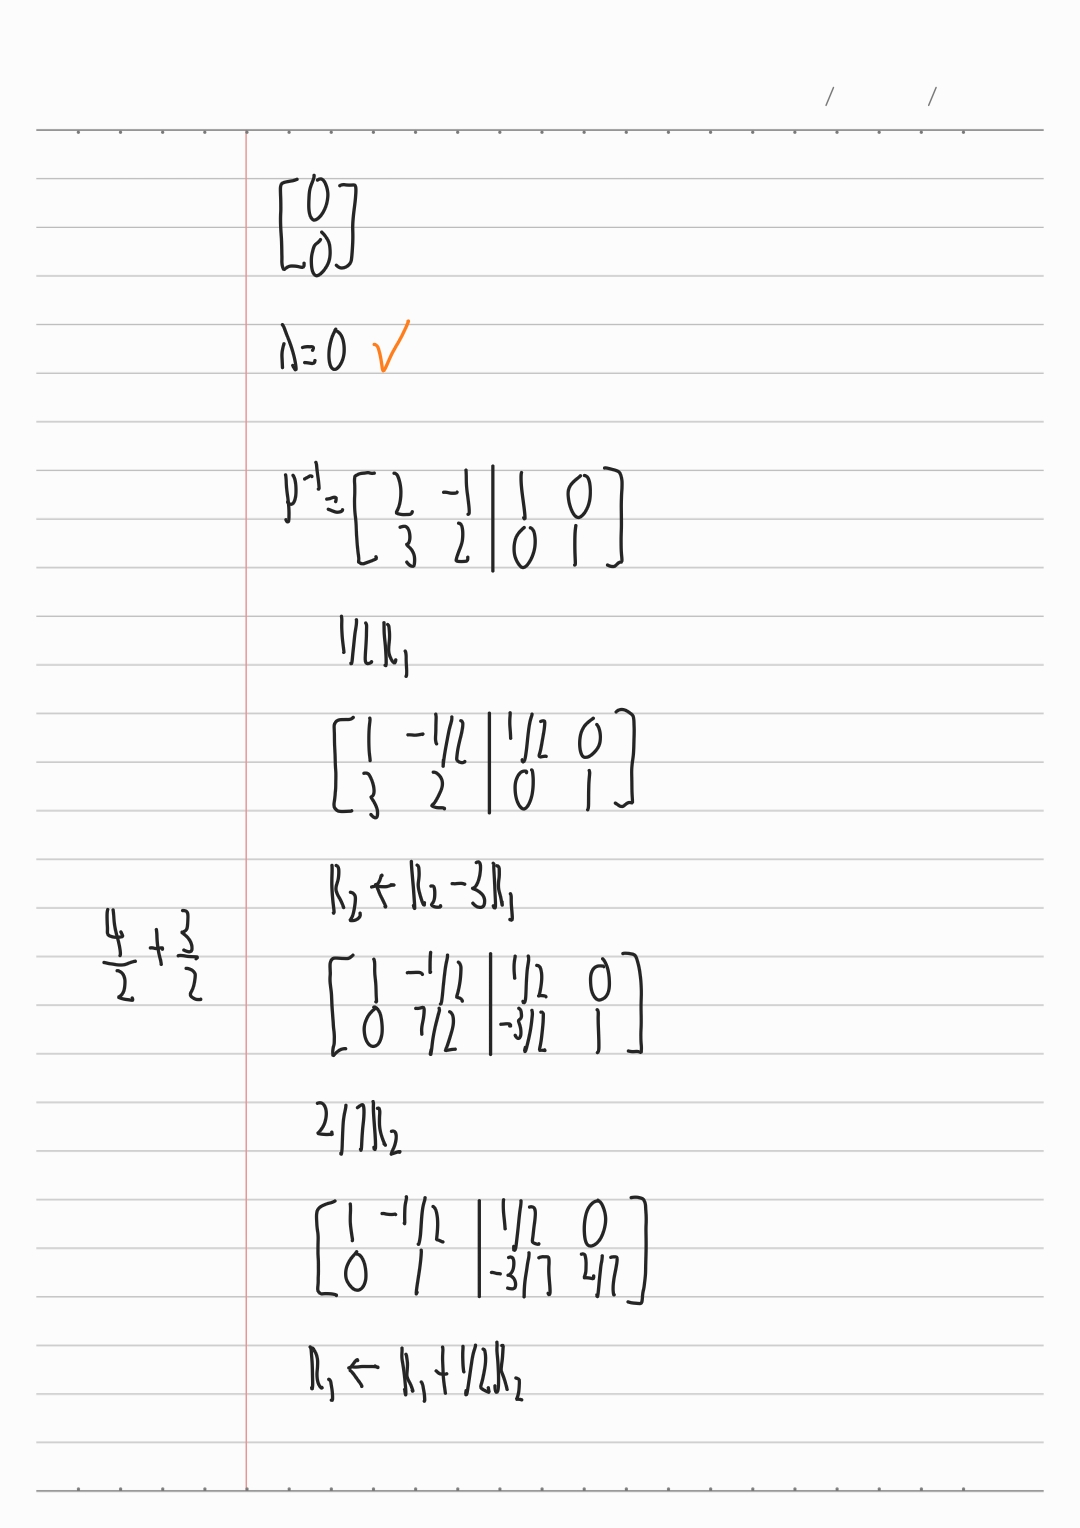 / /
[0
0]
λ=0 ✓
P⁻¹=[2 -1 | 1 0
3 2 | 0 1]
1/2R₁
[1 -1/2 | 1/2 0
3 2 | 0 1]
R₂ ← R₂ -3R₁
4/2 + 3/2
[1 -1/2 | 1/2 0
0 7/2 | -3/2 1]
2/7R₂
[1 -1/2 | 1/2 0
0 1 | -3/7 2/7]
R₁ ← R₁ + 1/2R₂